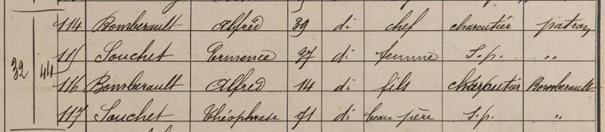 114 Bomberault Alfred 39 di chef charcutier patron
32 44 115 Souchet Ermence 37 di femme S.p. "
116 Bomberault Alfred 14 di fils charcutier Bomberault
117 Souchet Théophraste 71 di beau père S.p. "